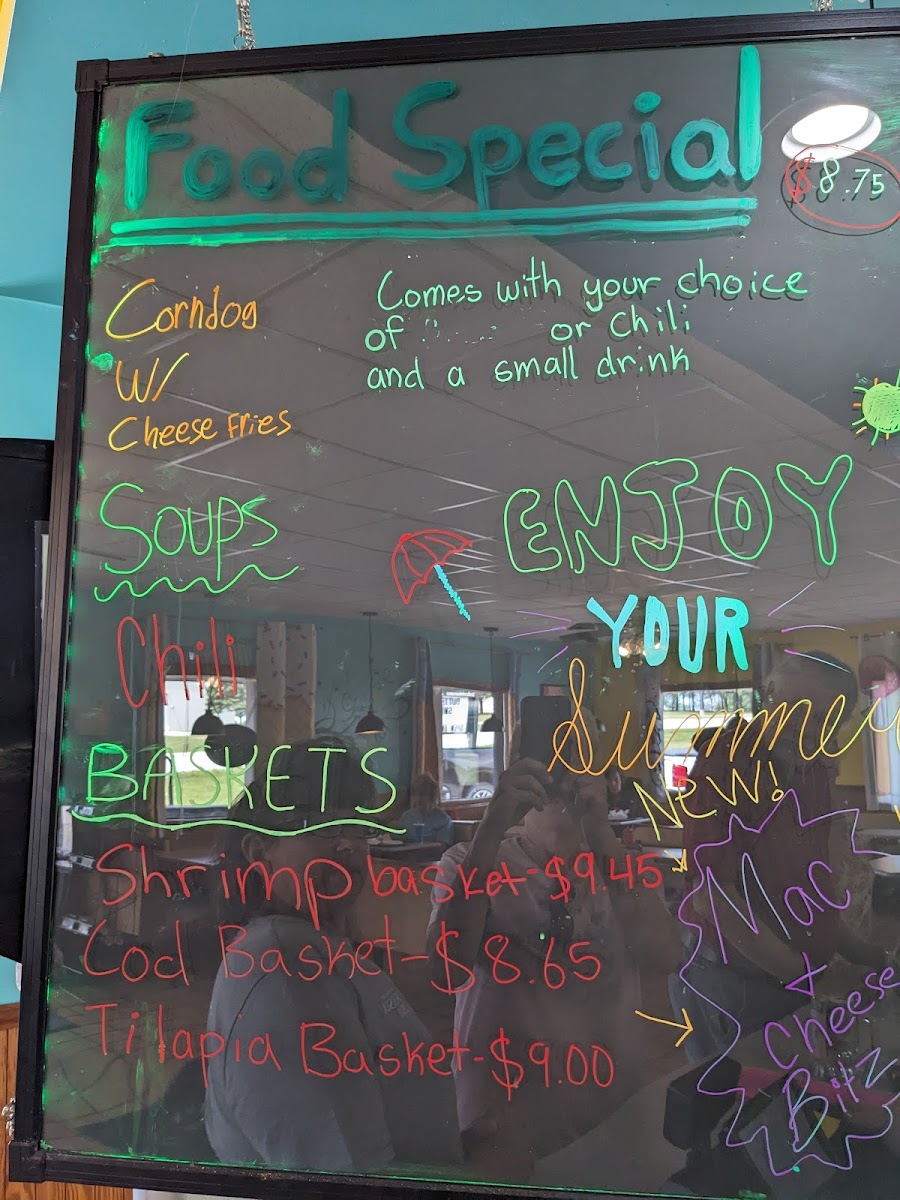 Food Special
$8.75
Corndog
W/
Cheese Fries
Comes with your choice
of or Chili
and a small drink
Soups
Chili
ENJOY
YOUR
Summer
BASKETS
Shrimp basket-$9.45
Cod Basket-$8.65
Tilapia Basket-$9.00
New!
Mac
&
Cheese
Bitz